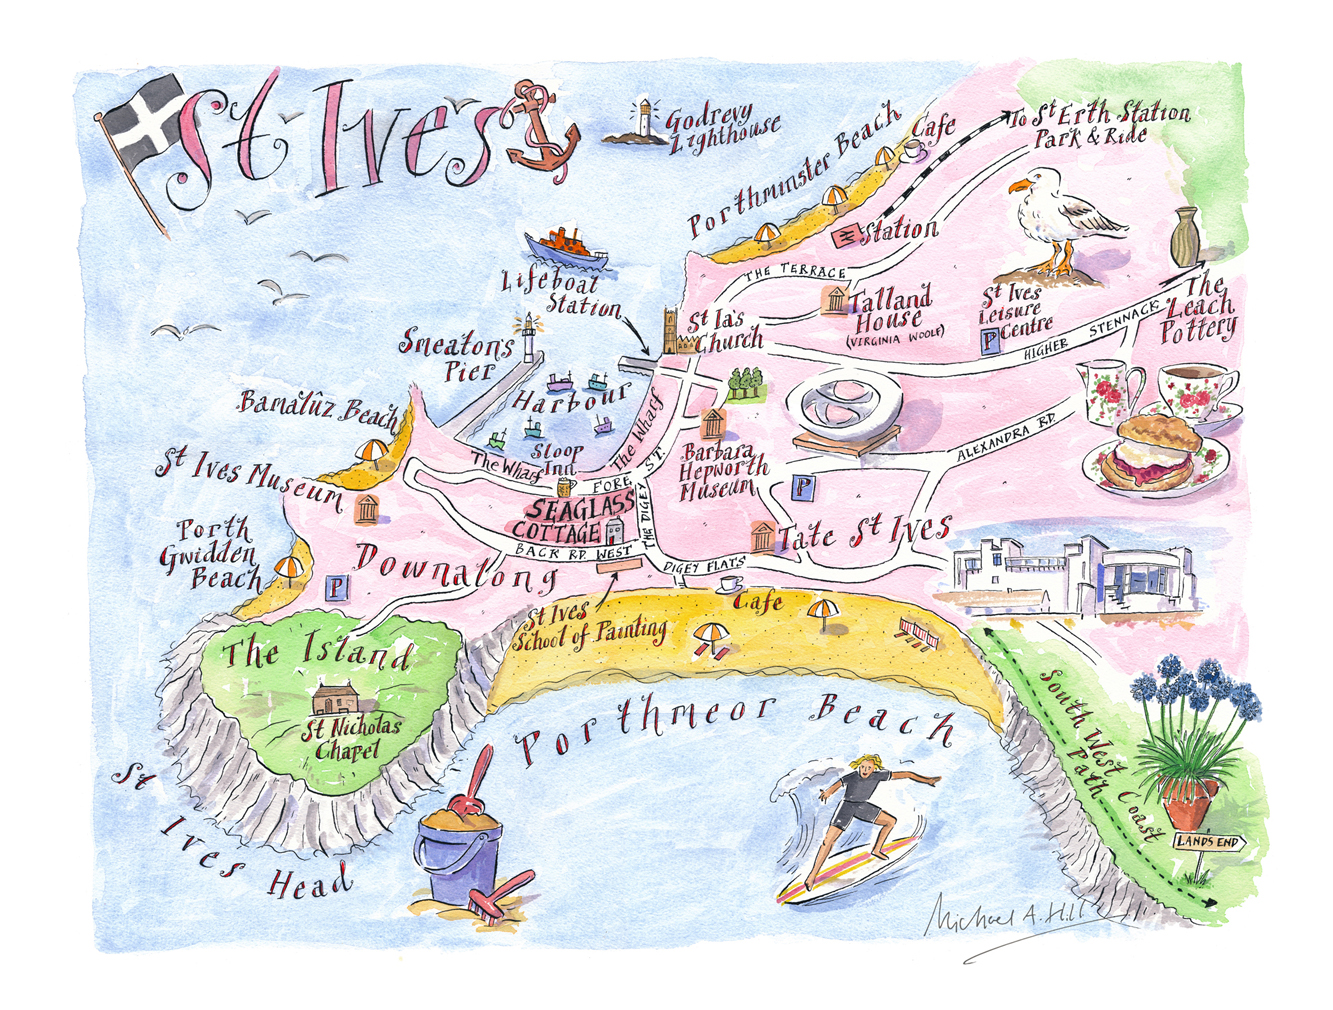 St Ives
Godrevy
Lighthouse
Porthminster Beach
Cafe
To St Erth Station
Park & Ride
Station
Lifeboat
Station
THE TERRACE
Talland
House
(VIRGINIA WOOLF)
St Ives
Leisure
Centre
P
HIGHER STENNACK
The
Leach
Pottery
St Ia's
Church
Smeaton's
Pier
Harbour
Bamalûz Beach
The Wharf
The Wharf
Sloop
Inn
FORE ST.
Barbara
Hepworth
Museum
P
ALEXANDRA RD.
St Ives Museum
SEAGLASS
COTTAGE
THE DIGEY
BACK RD. WEST
DIGEY FLATS
Tate St Ives
Porth
Gwidden
Beach
P
Downalong
St Ives
School of Painting
Cafe
The Island
St Nicholas
Chapel
Porthmeor Beach
St Ives Head
South West Coast
Path
LANDS END
Michael A. Hill